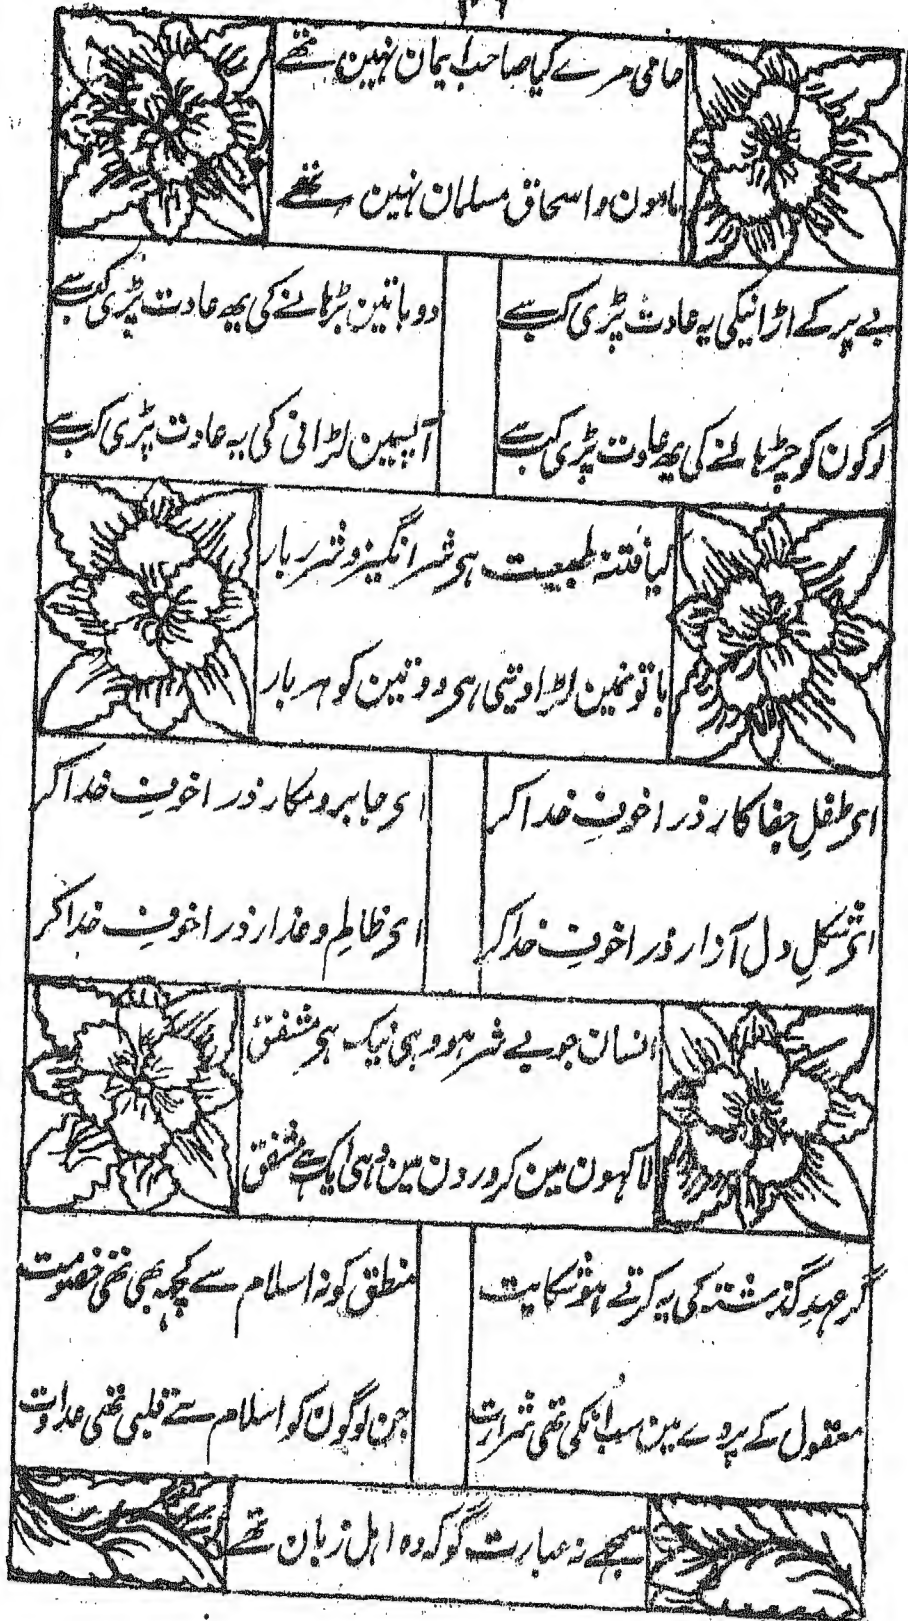 ۳۶
حامی مرے کیا صاحب ایمان نہین تھے
مامون و اسحاق مسلمان نہین تھے
بے پر کے اڑانیکی یہ عادت پڑی کب سے
دو باتین بڑہانے کی یہ عادت پڑی کب سے
لوگون کو چڑہانے کی یہ عادت پڑی کب سے
آپسمین لڑانی کی یہ عادت پڑی کب سے
کیا فتنہ طبیعت ہی شر انگیز و شرر بار
باتونمین لڑا دیتی ہی دو تین کو ہر بار
ای طفلِ جفا کار ذرا خوفِ خدا کر
ای جابر و مکار ذرا خوفِ خدا کر
ای شکلِ دل آزار ذرا خوفِ خدا کر
ای ظالم و غدار ذرا خوفِ خدا کر
انسان جو بے شر ہو وہی نیک ہی مشفق
لاکہون مین کرورون مین وہی ایک ہے مشفق
گر عہدِ گذشتہ کی یہ کرتے ہو شکایت
منطق کو نہ اسلام سے کچہ بھی تھی خصومت
معقول کے پردے مین سب انکی تھی شرارت
جن لوگون کو اسلام سے قلبی تھی عداوت
سمجھے نہ عبارت گو کہ وہ اہل زبان تھے